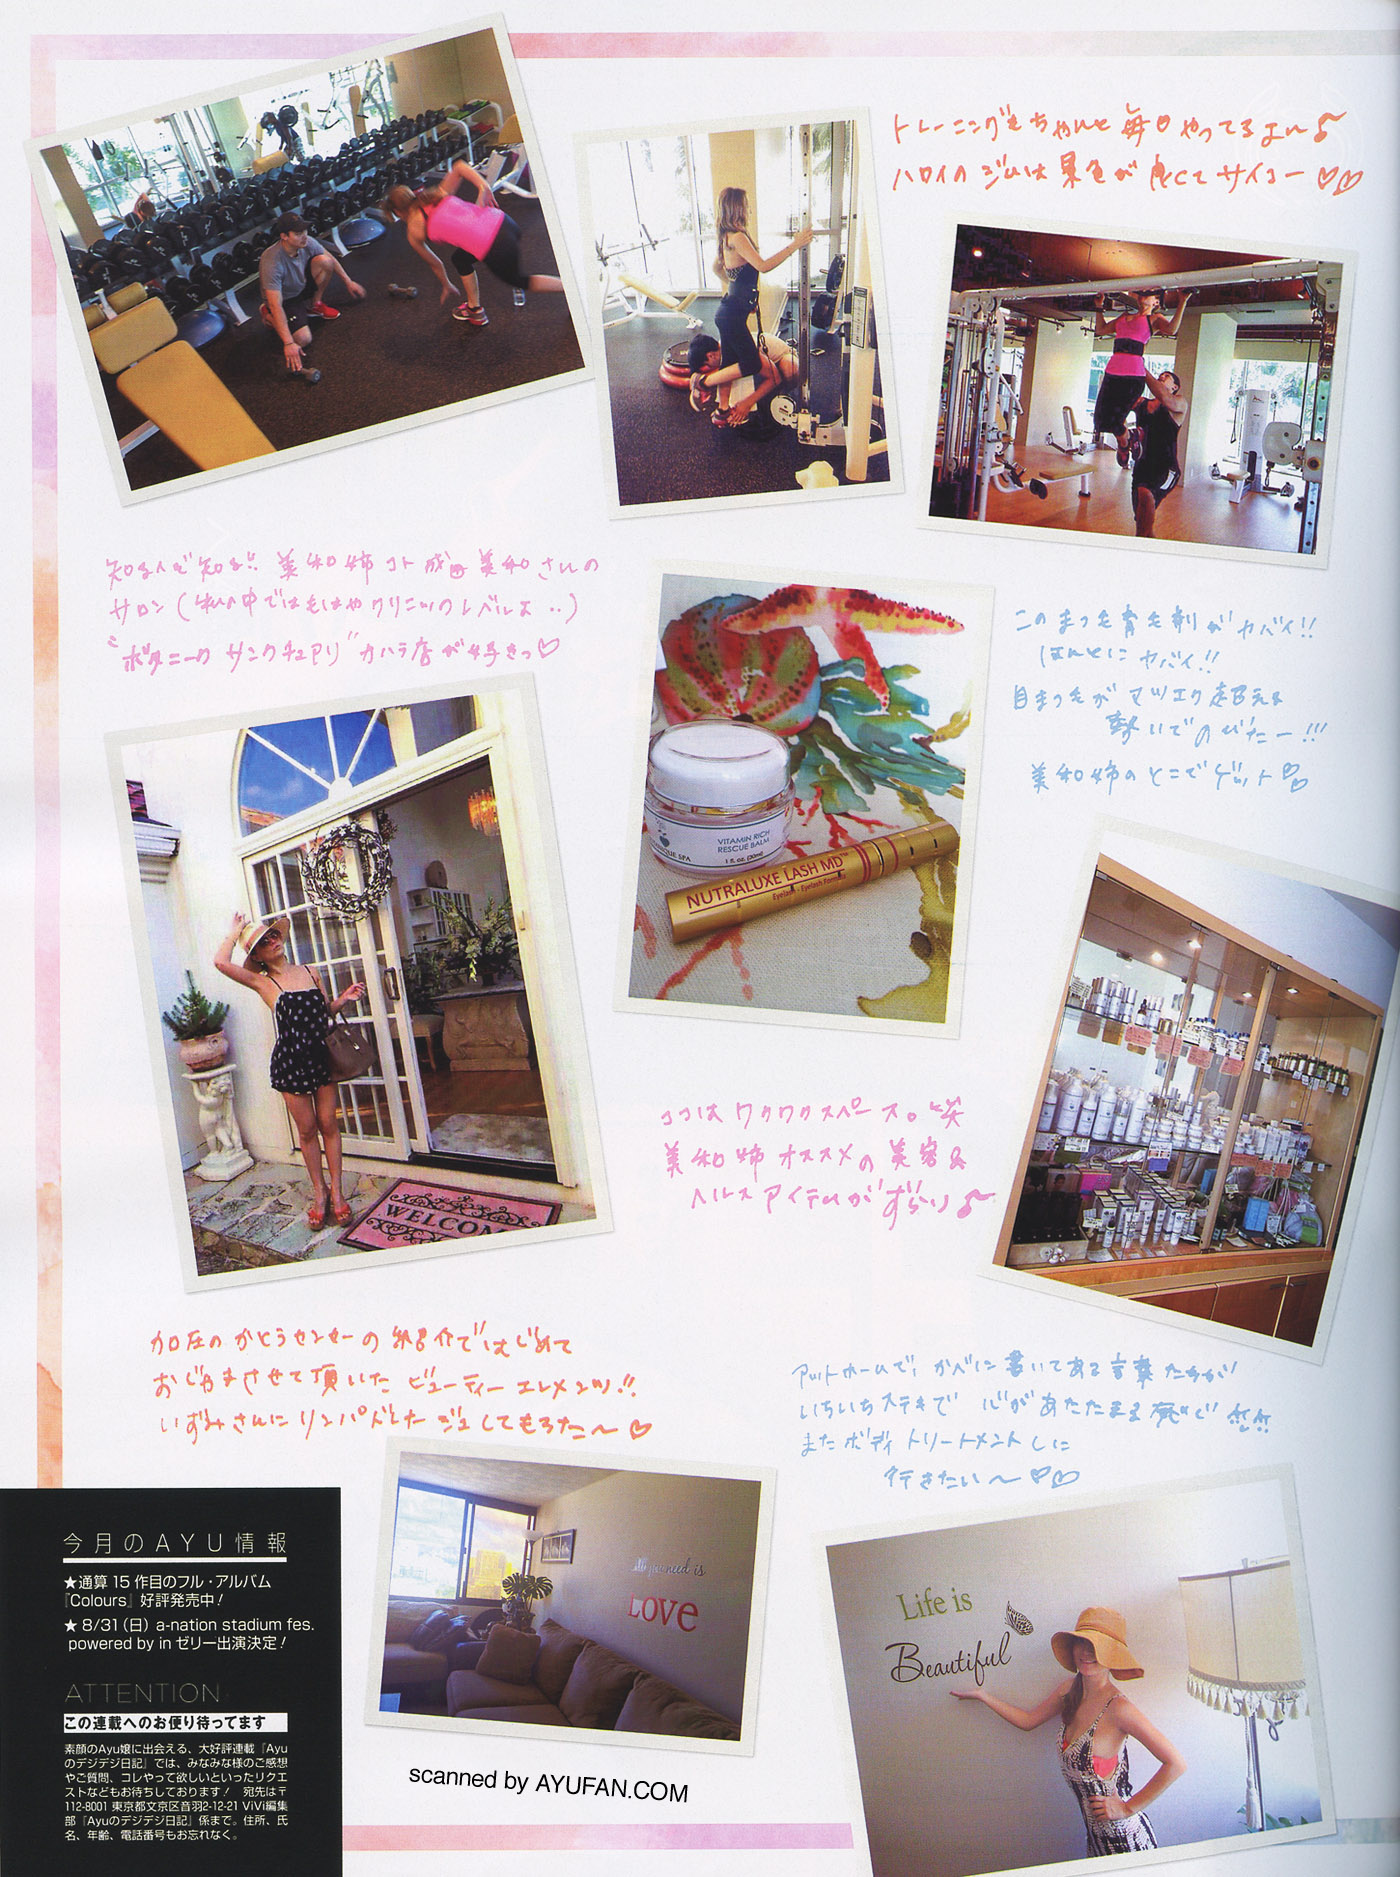 トレーニングもちゃんと毎日やってるよ〜♪
ハワイのジムは景色が良くてサイコー♡♡
知る人ぞ知る!! 美和姉コト成田美和さんの
サロン(私の中ではもはやクリニックレベルよ..)
"ボタニーク サンクチュアリ"カハラ店が好きっ♡
このまつ毛育毛剤がヤバイ!!
ほんとにヤバイ!!
自まつ毛がマツエク超える
勢いでのびたー!!!
美和姉のとこでゲット♡♡
VITAMIN RICH
RESCUE BALM
1 fl. oz. (30ml)
NUTRALUXE LASH MD
Eyelash - Eyelash Formula
WELCOM
ココはワクワクスペース。笑
美和姉オススメの美容&
ヘルスアイテムがずらり♪
かとうセンセーの紹介ではじめて
おじゃまさせて頂いたビューティーエレメンツ!!
いずみさんにリンパドレナージュしてもらった〜♡
アットホームで、かべに書いてある言葉たちが
いちいちステキで 心があたたまる
またボディトリートメントしに
行きたい〜♡♡
All you need is
LOVE
Life is
Beautiful
今月のAYU情報
★通算15作目のフル・アルバム
『Colours』好評発売中!
★8/31(日) a-nation stadium fes.
powered by in ゼリー出演決定!
ATTENTION
この連載へのお便り待ってます
素顔のAyu嬢に出会える、大好評連載『Ayu
のデジデジ日記』では、みなみな様のご感想
やご質問、コレやって欲しいといったリクエ
ストなどもお待ちしております! 宛先は〒
112-8001 東京都文京区音羽2-12-21 ViVi編集
部『Ayuのデジデジ日記』係まで。住所、氏
名、年齢、電話番号もお忘れなく。
scanned by AYUFAN.COM